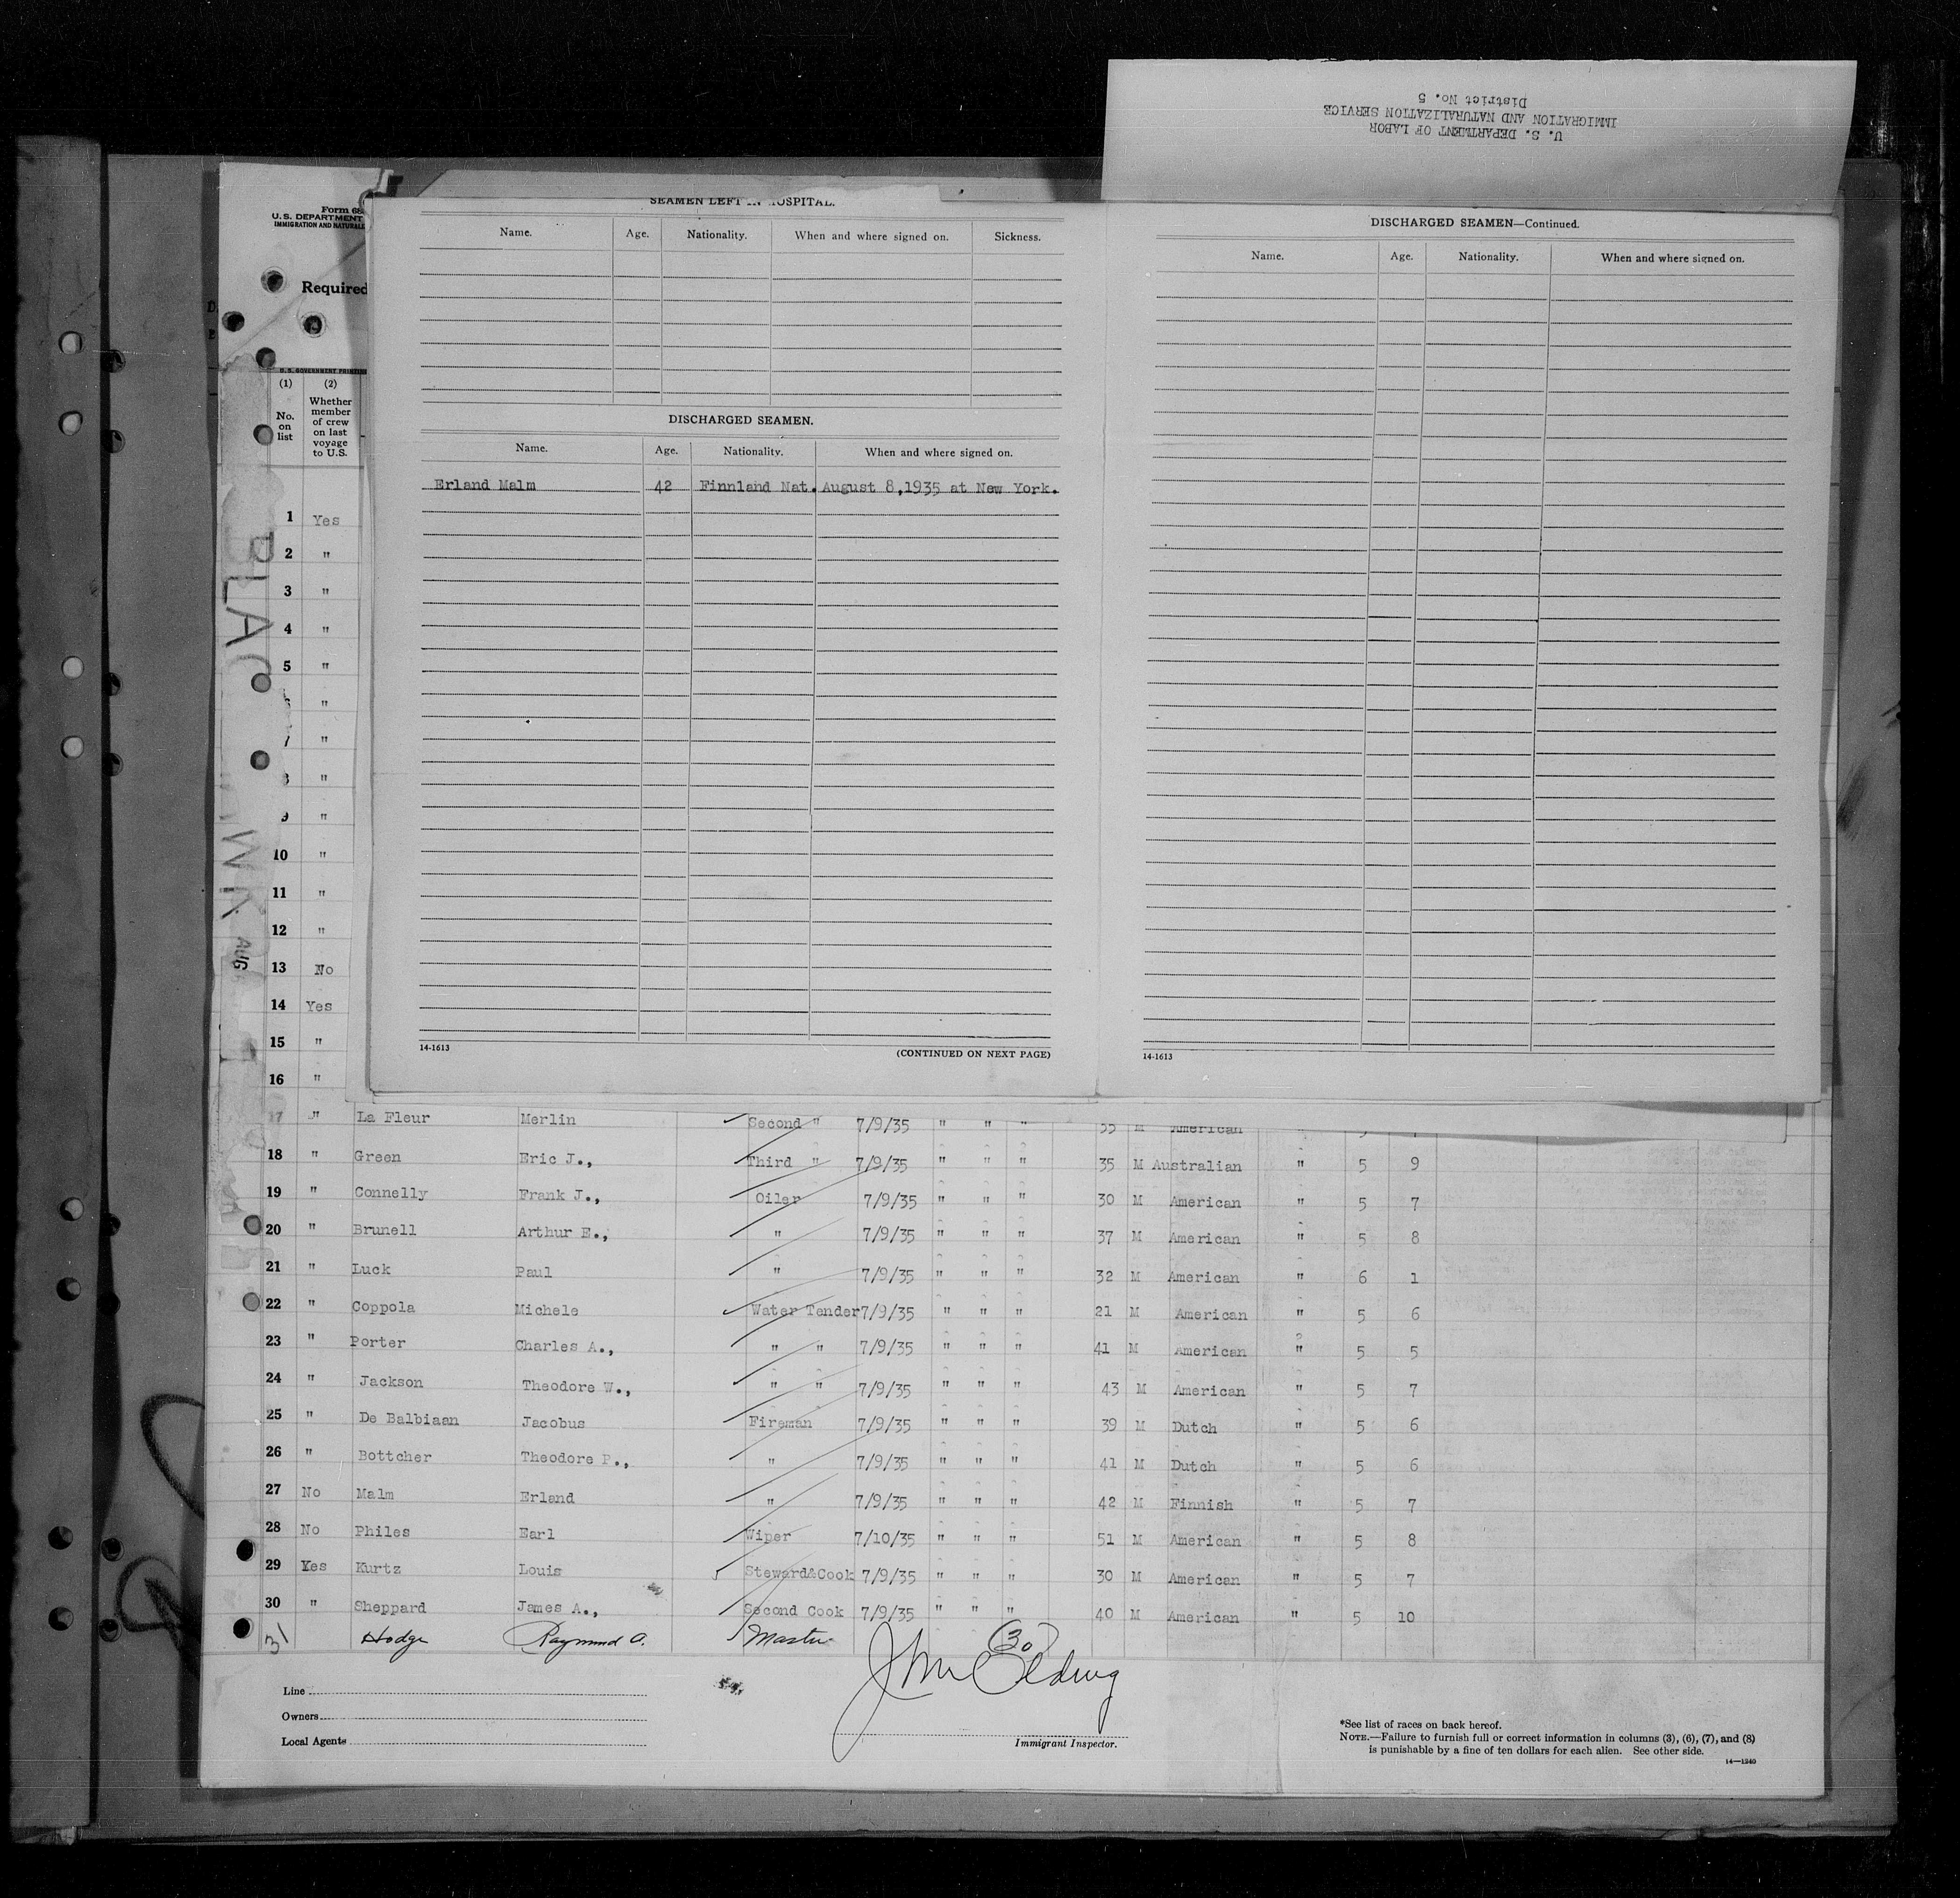 U. S. DEPARTMENT OF LABOR
IMMIGRATION AND NATURALIZATION SERVICE
District No. 5
Form 68
U. S. DEPARTMENT
IMMIGRATION AND NATURALI
Required
U. S. GOVERNMENT PRINTIN
(1) (2)
No. on list
Whether member of crew on last voyage to U.S.
1 Yes
2 "
3 "
4 "
5 "
"
"
"
9 "
10 "
11 "
12 "
13 No
14 Yes
15 "
16 "
AUG
SEAMEN LEFT IN HOSPITAL.
Name. Age. Nationality. When and where signed on. Sickness.
DISCHARGED SEAMEN.
Name. Age. Nationality. When and where signed on.
Erland Malm 42 Finnland Nat. August 8,1935 at New York.
14-1613 (CONTINUED ON NEXT PAGE)
DISCHARGED SEAMEN—Continued.
Name. Age. Nationality. When and where signed on.
14-1613
17 " La Fleur Merlin Second " 7/9/35 " " " 35 M American "
18 " Green Eric J., Third " 7/9/35 " " " 35 M Australian " 5 9
19 " Connelly Frank J., Oiler 7/9/35 " " " 30 M American " 5 7
20 " Brunell Arthur E., " 7/9/35 " " " 37 M American " 5 8
21 " Luck Paul " 7/9/35 " " " 32 M American " 6 1
22 " Coppola Michele Water Tender 7/9/35 " " " 21 M American " 5 6
23 " Porter Charles A., " " 7/9/35 " " " 41 M American " 5 5
24 " Jackson Theodore W., " " 7/9/35 " " " 43 M American " 5 7
25 " De Balbiaan Jacobus Fireman 7/9/35 " " " 39 M Dutch " 5 6
26 " Bottcher Theodore P., " 7/9/35 " " " 41 M Dutch " 5 6
27 No Malm Erland " 7/9/35 " " " 42 M Finnish " 5 7
28 No Philes Earl Wiper 7/10/35 " " " 51 M American " 5 8
29 Yes Kurtz Louis Steward&Cook 7/9/35 " " " 30 M American " 5 7
30 " Sheppard James A., Second Cook 7/9/35 " " " 40 M American " 5 10
31 Hodge Raymond O. Master
(30)
Line
Owners
Local Agents
Immigrant Inspector.
*See list of races on back hereof.
NOTE.—Failure to furnish full or correct information in columns (3), (6), (7), and (8)
is punishable by a fine of ten dollars for each alien. See other side.
14—1240